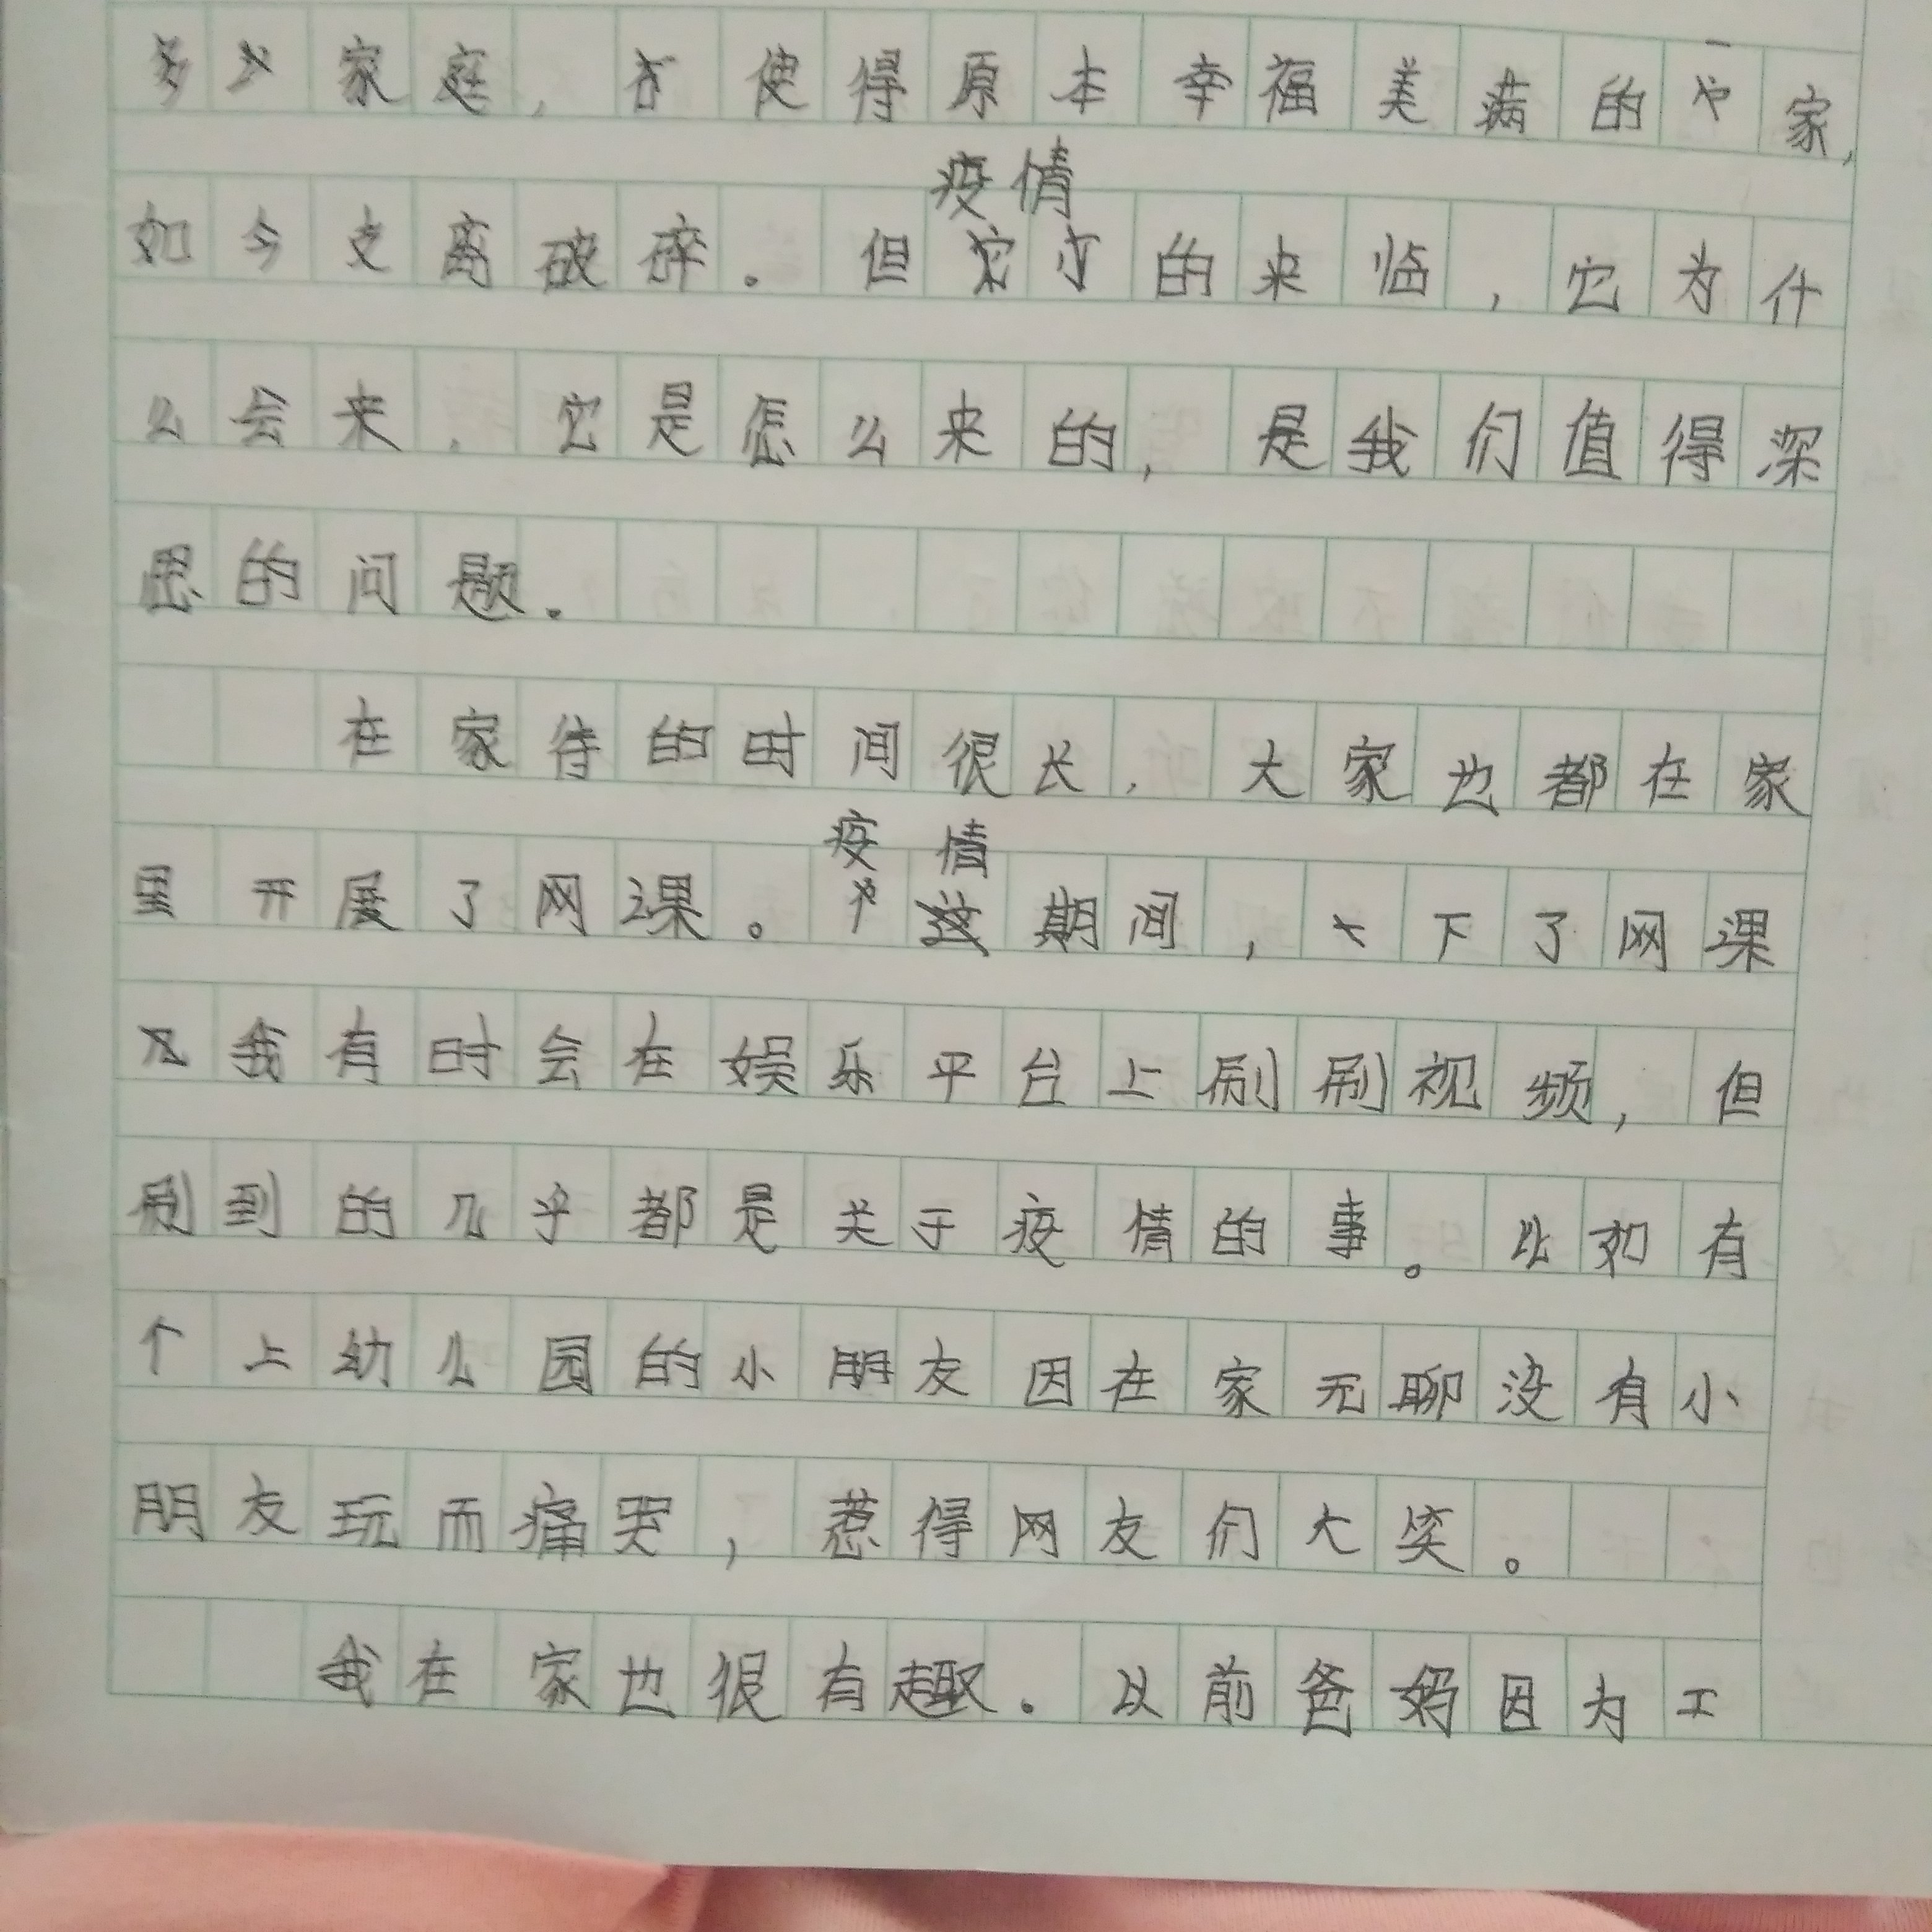 多少家庭，使得原本幸福美满的一家，
如今支离破碎。但疫情的来临，它为什
么会来，它是怎么来的，是我们值得深
思的问题。
在家待的时间很长，大家也都在家
里开展了网课。疫情期间，下了网课
我有时会在娱乐平台上刷刷视频，但
刷到的几乎都是关于疫情的事。比如有
个上幼儿园的小朋友因在家无聊没有小
朋友玩而痛哭，惹得网友们大笑。
我在家也很有趣。以前爸妈因为工